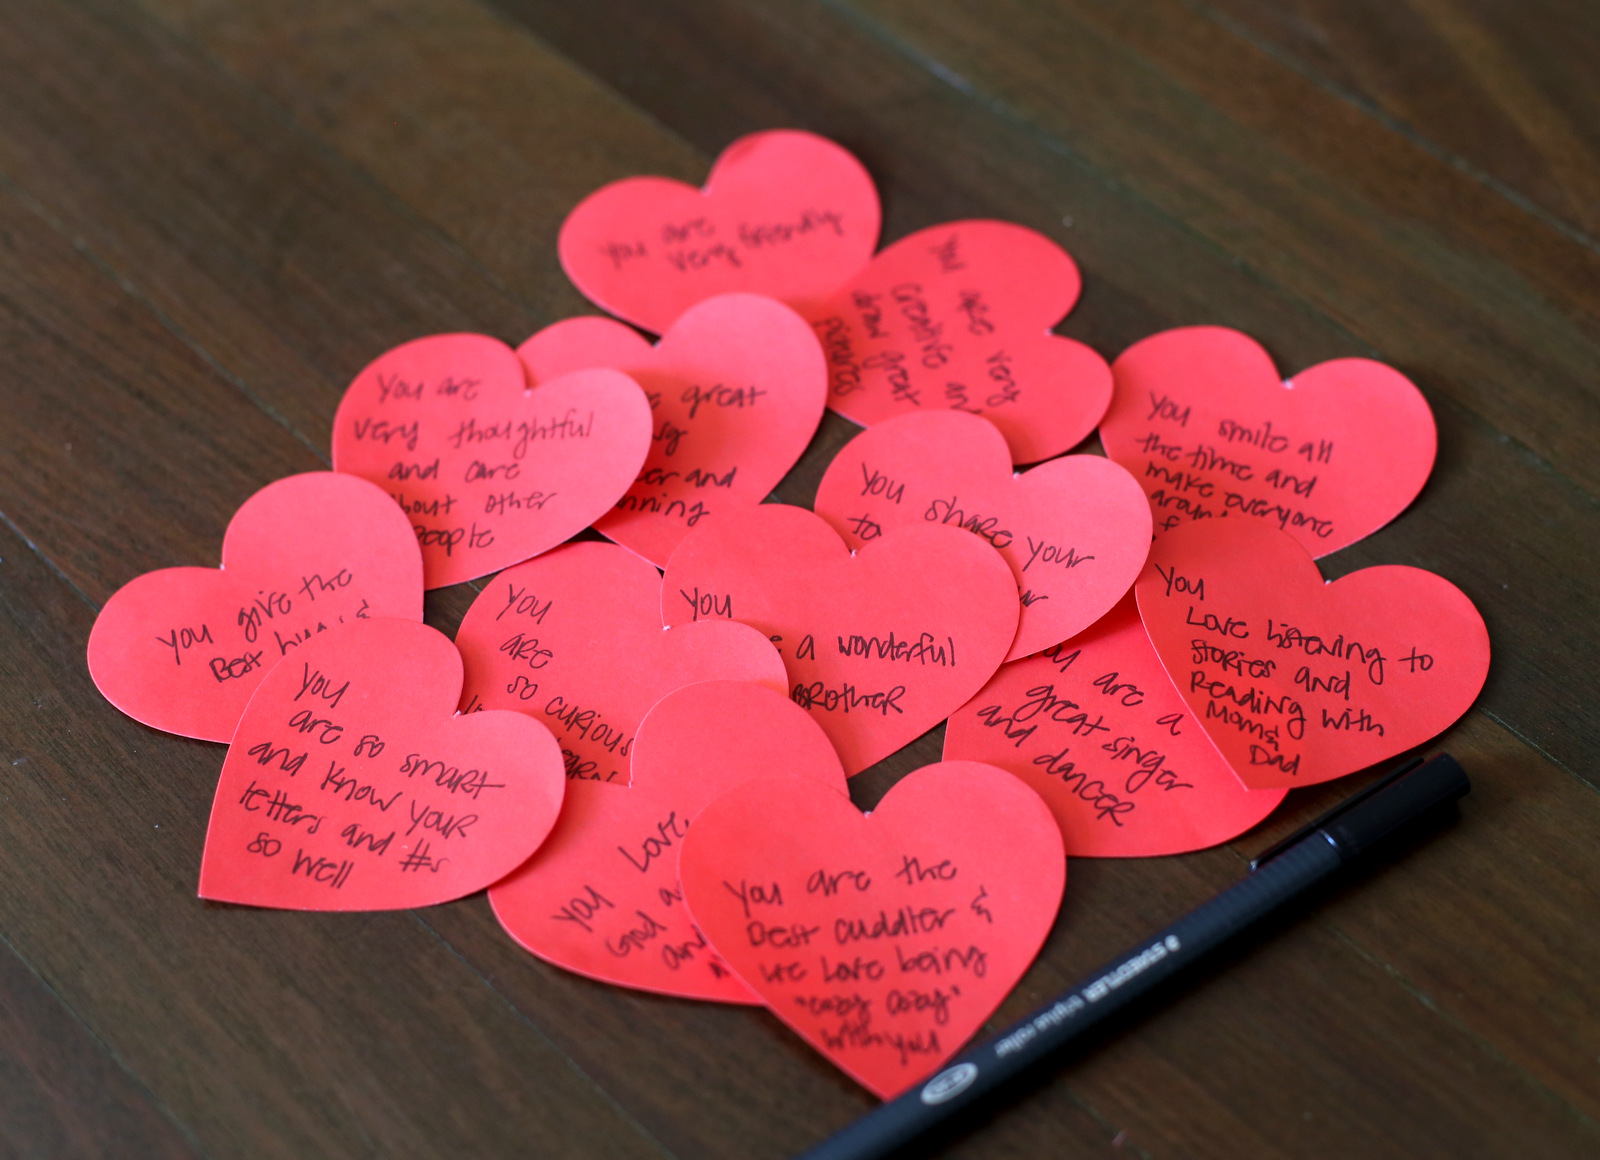 You are
very friendly
You are very
creative an
draw great
pictures
You are
very thoughtful
and care
about other
people
great
and
You smile all
the time and
make everyone
around
You share your
to
You give the
Best hugs &
You
are
so curious
You
a wonderful
BROTHER
You
Love listening to
stories and
Reading with
Mom &
Dad
You are a
great singer
and dancer
You
are so smart
and know your
letters and #s
so well
You Love
God a
and
You are the
Best cuddler &
we love being
"cozy cozy"
with you
STAEDTLER triplus roller